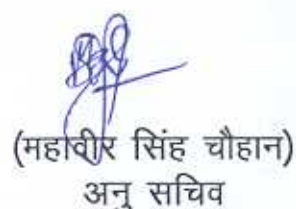 (महावीर सिंह चौहान)
अनु सचिव